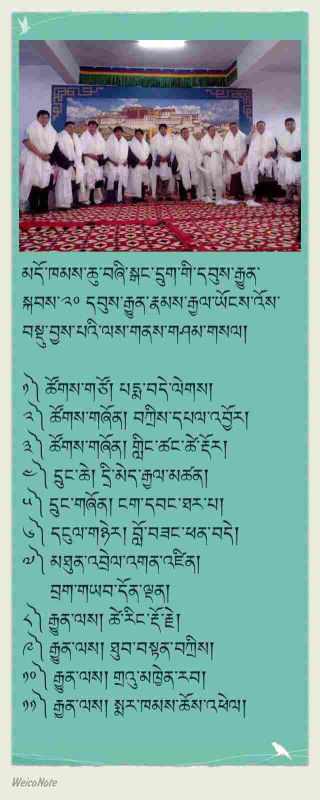 མདོ་ཁམས་ཆུ་བཞི་སྒང་དྲུག་གི་དབུས་རྒྱུན་
སྐབས་༢༠ དབུས་རྒྱུན་རྣམས་རྒྱལ་ཡོངས་འོས་
བསྡུ་བྱས་པའི་ལས་གནས་གཤམ་གསལ།
༡༽ ཚོགས་གཙོ། པདྨ་བདེ་ལེགས།
༢༽ ཚོགས་གཞོན། བཀྲིས་དཔལ་འབྱོར།
༣༽ ཚོགས་གཞོན། གླིང་ཚང་ཚེ་རྡོར།
༤༽ དྲུང་ཆེ། དྲི་མེད་རྒྱལ་མཚན།
༥༽ དྲུང་གཞོན། ངག་དབང་ཐར་པ།
༦༽ དངུལ་གཉེར། བློ་བཟང་ཕན་བདེ།
༧༽ མཐུན་འབྲེལ་འགན་འཛིན།
བྲག་གཡབ་དོན་ལྡན།
༨༽ རྒྱུན་ལས། ཚེ་རིང་རྡོ་རྗེ།
༩༽ རྒྱུན་ལས། ཐུབ་བསྟན་བཀྲིས།
༡༠༽ རྒྱུན་ལས། གྲའུ་མཁྱེན་རབ།
༡༡༽ རྒྱུན་ལས། སྨར་ཁམས་ཆོས་འཕེལ།
WeicoNote